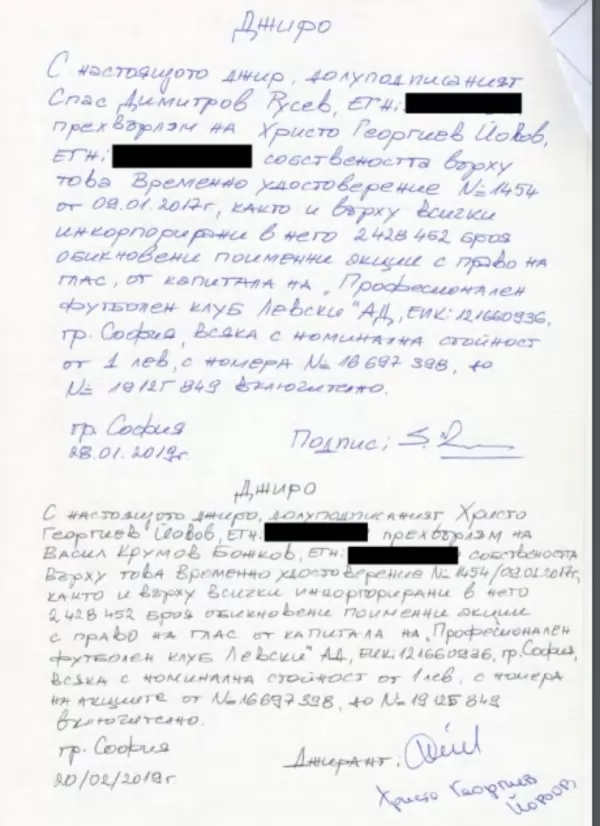 Джиро
С настоящото джир, долуподписаният
Спас Димитров Русев, ЕГН:
прехвърлям на Христо Георгиев Йовов,
ЕГН: собствеността върху
това Временно удостоверение №1454
от 09.01.2017г, както и върху всички
инкорпорирани в него 2 428 452 броя
обикновени поименни акции с право на
глас, от капитала на „Професионален
футболен клуб Левски" АД, ЕИК:121660936,
гр. София, всяка с номинална стойност
от 1 лев, с номера №16 697 398, до
№ 19 125 849 включително.
гр. София
28.01.2019г.
Подпис:
Джиро
С настоящото джиро, долуподписаният Христо
Георгиев Йовов, ЕГН: прехвърлям на
Васил Крумов Божков, ЕГН: собствеността
върху това Временно удостоверение №1454/09.01.2017г,
както и върху всички инкорпорирани в него
2 428 452 броя обикновени поименни акции
с право на глас от капитала на „Професионален
футболен клуб Левски" АД, ЕИК:121660936, гр. София,
всяка с номинална стойност от 1 лев, с номера
на акциите от №16 697 398, до №19 125 849
включително.
гр. София
20/02/2019г.
Джирант:
Христо Георгиев
Йовов